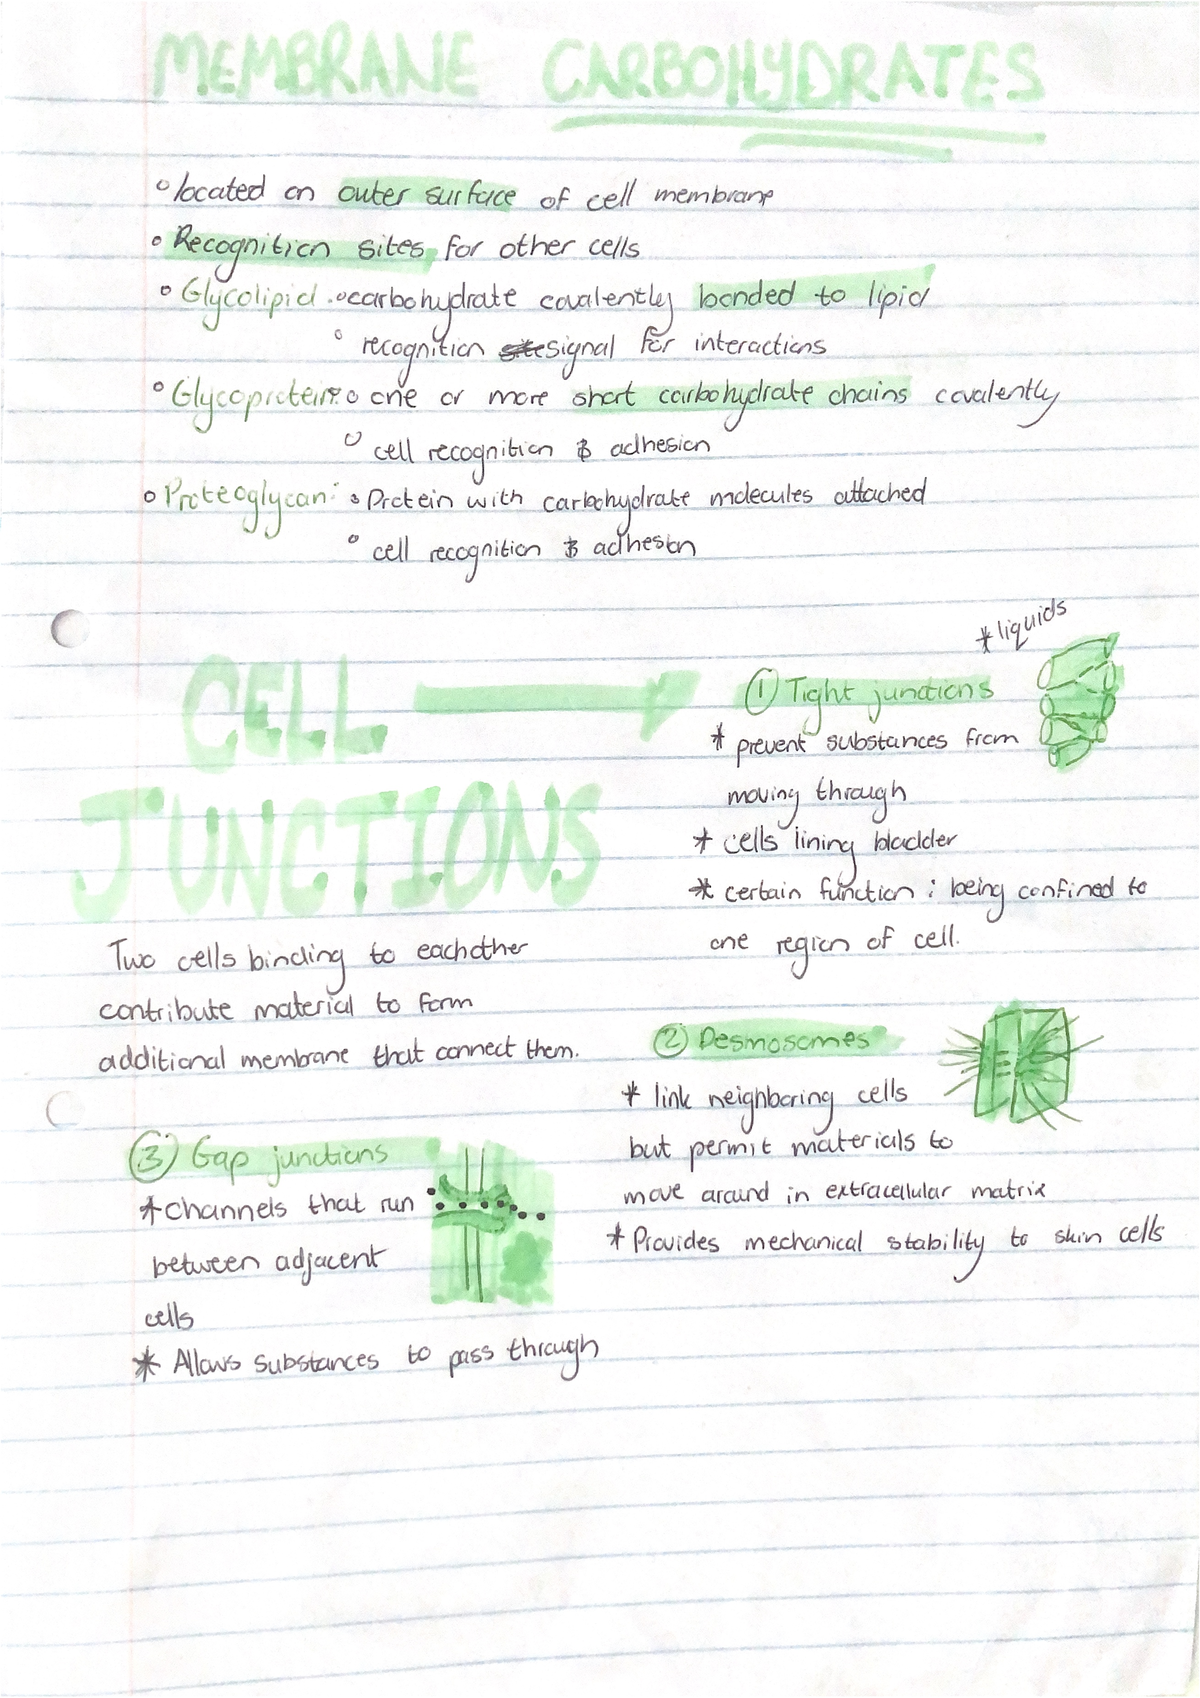 MEMBRANE CARBOHYDRATES
located on outer surface of cell membrane
Recognition sites for other cells
Glycolipid carbohydrate covalently bonded to lipid
recognition signal for interactions
Glycoprotein: one or more short carbohydrate chains covalently
cell recognition & adhesion
Proteoglycan: Protein with carbohydrate molecules attached
cell recognition & adhesion
CELL
JUNCTIONS
Two cells binding to eachother
contribute material to form
additional membrane that connect them.
*liquids
① Tight junctions
* prevent substances from
moving through
* cells lining bladder
* certain function : being confined to
one region of cell.
② Desmosomes
* link neighboring cells
but permit materials to
move around in extracellular matrix
* Provides mechanical stability to skin cells
③ Gap junctions
* channels that run
between adjacent
cells
* Allows substances to pass through